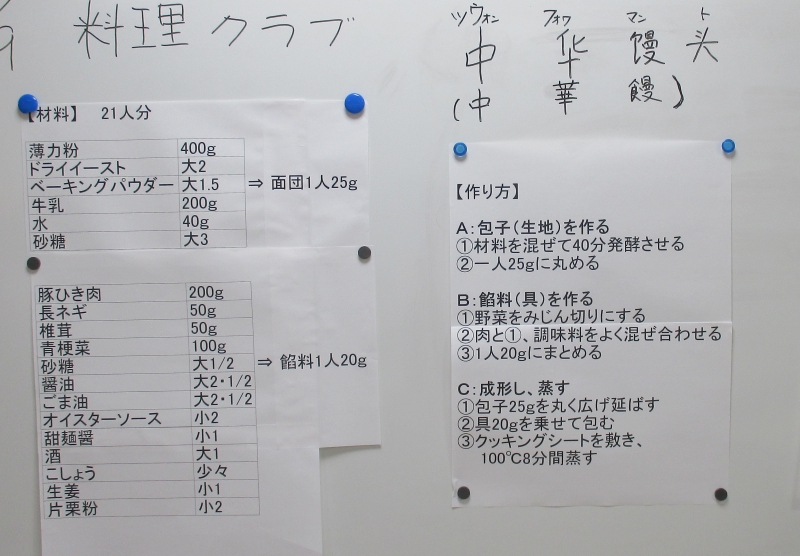 料理クラブ
ツウォン フォワ マン ト
中 华 馒 头
(中 華 饅)
【材料】 21人分
薄力粉 400g
ドライイースト 大2
ベーキングパウダー 大1.5
牛乳 200g
水 40g
砂糖 大3
⇒ 面団1人25g
豚ひき肉 200g
長ネギ 50g
椎茸 50g
青梗菜 100g
砂糖 大1/2
醤油 大2・1/2
ごま油 大2・1/2
オイスターソース 小2
甜麺醤 小1
酒 大1
こしょう 少々
生姜 小1
片栗粉 小2
⇒ 餡料1人20g
【作り方】
A:包子(生地)を作る
①材料を混ぜて40分発酵させる
②一人25gに丸める
B:餡料(具)を作る
①野菜をみじん切りにする
②肉と①、調味料をよく混ぜ合わせる
③1人20gにまとめる
C:成形し、蒸す
①包子25gを丸く広げ延ばす
②具20gを乗せて包む
③クッキングシートを敷き、
100℃8分間蒸す